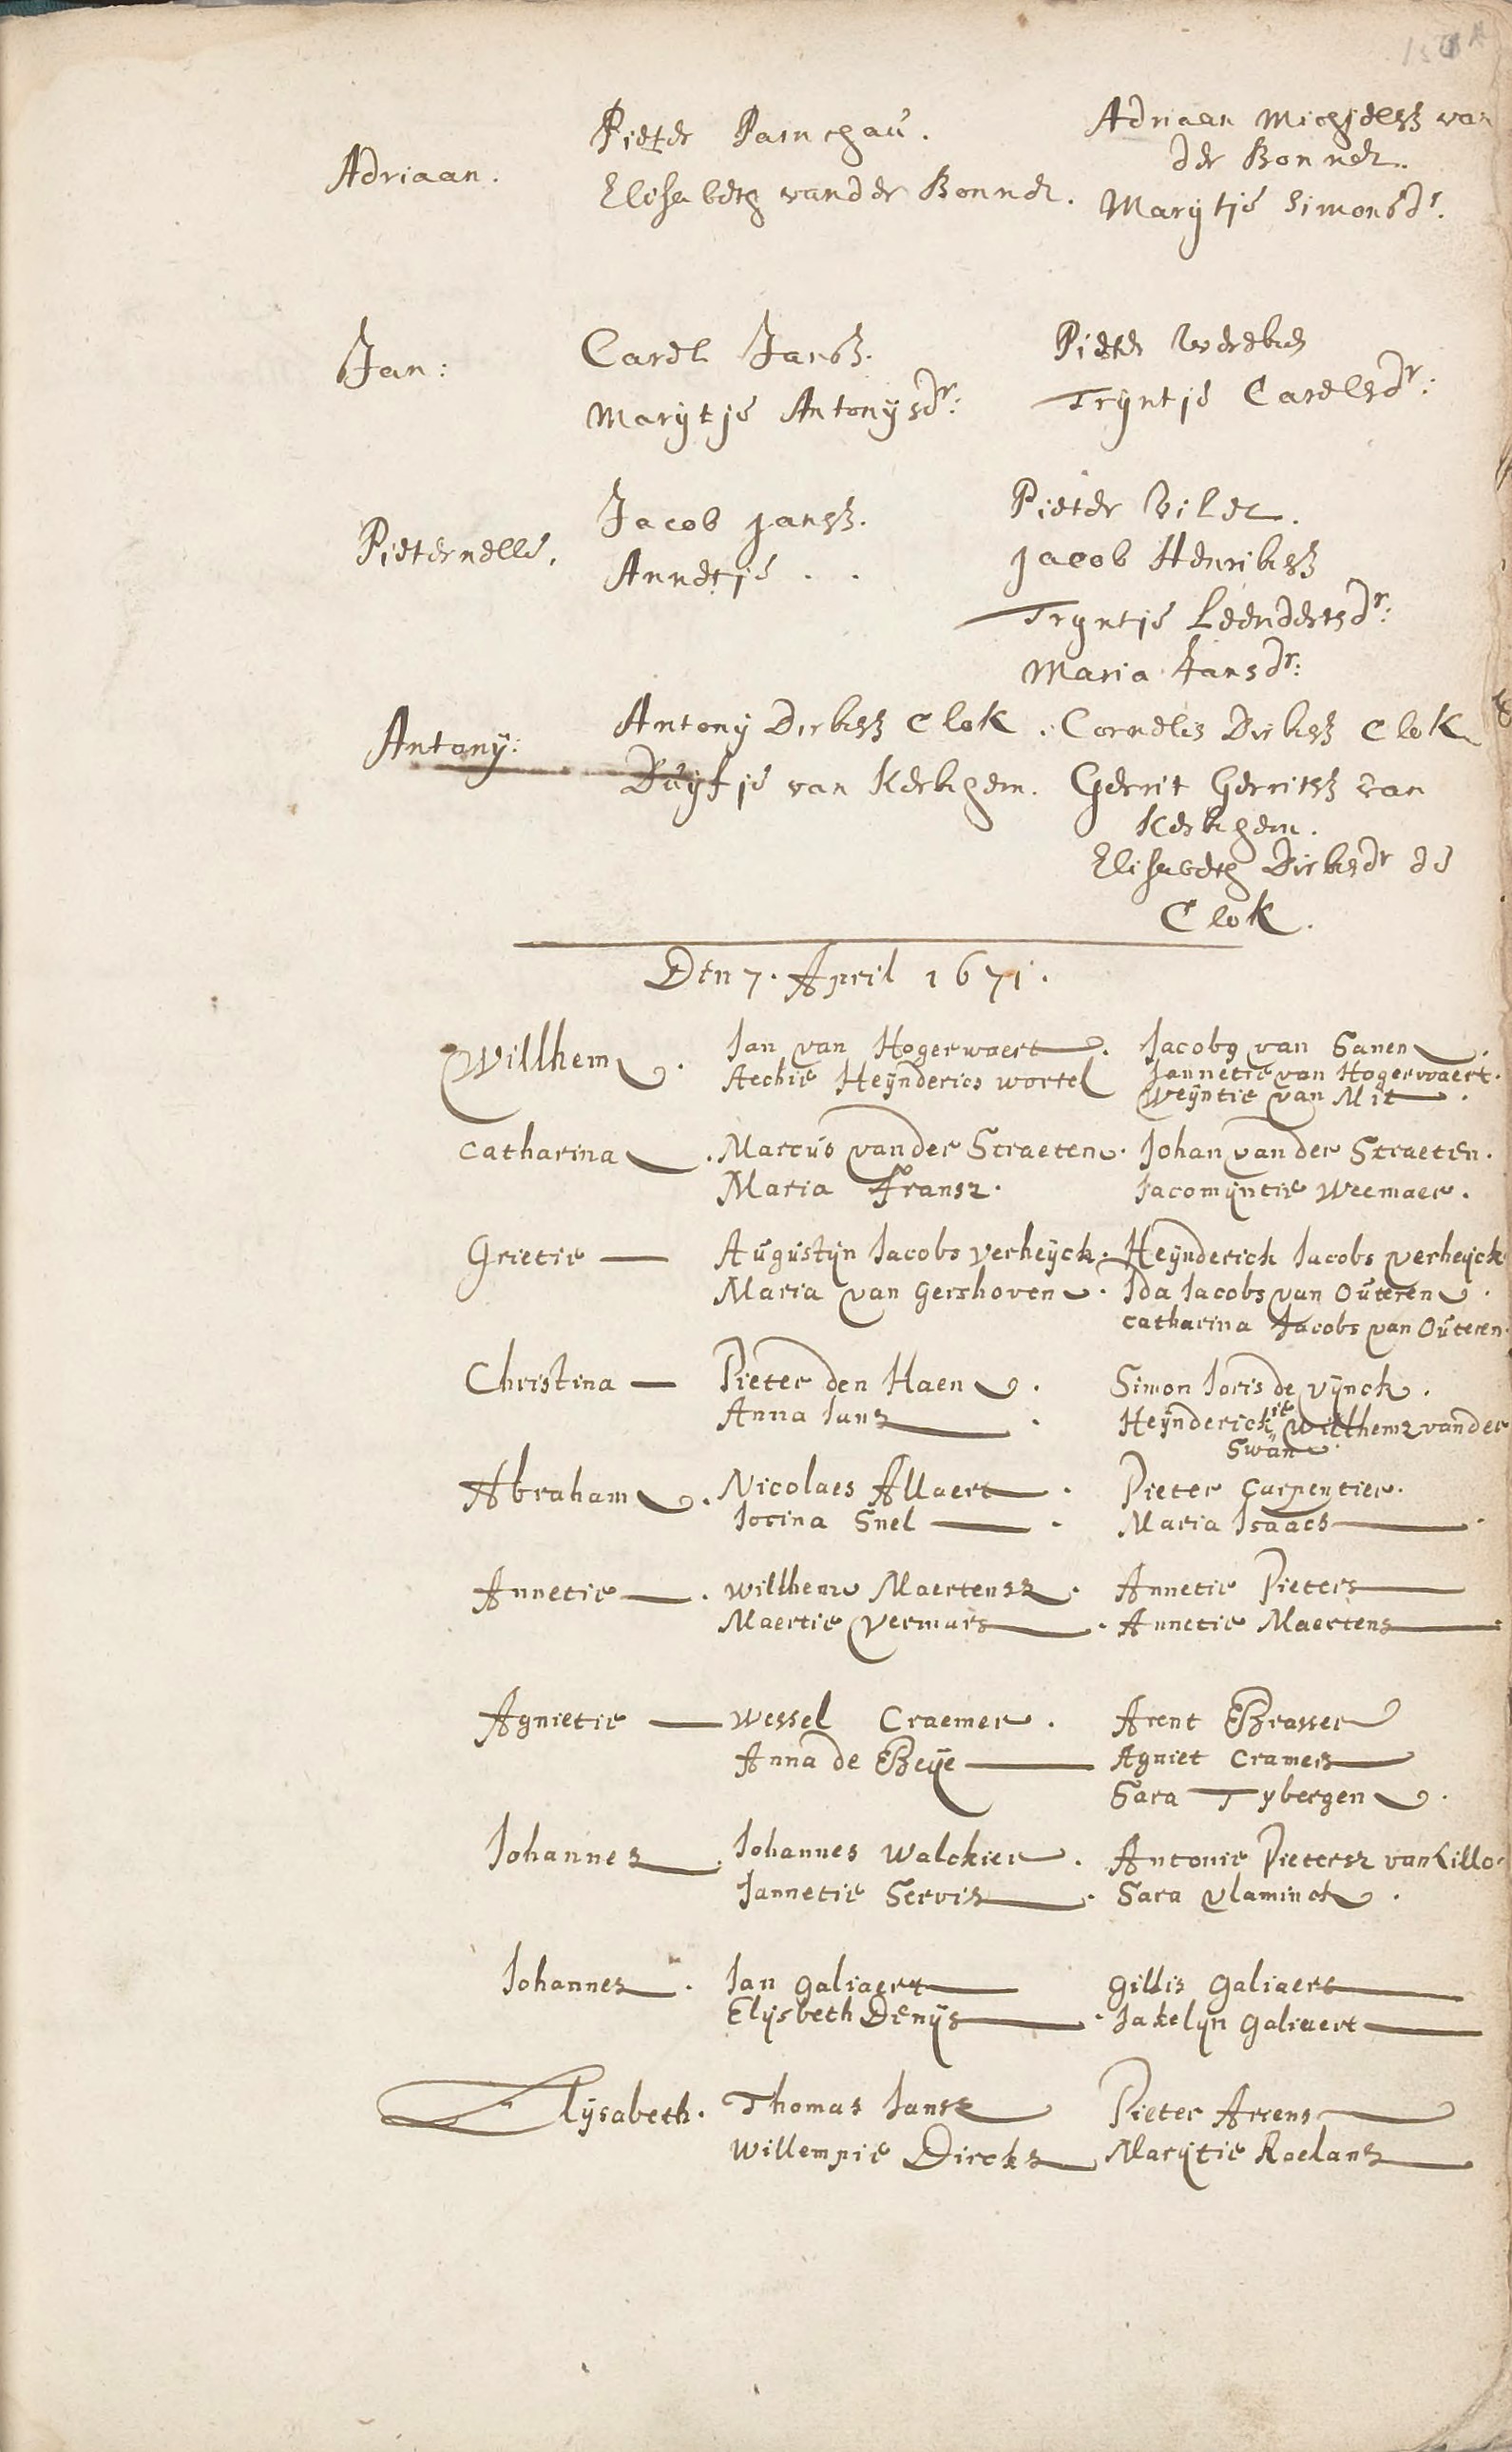 Adriaan.
Pieter Parnchau.
Elisabeth vander Bonnel.
Adriaan Michielsz van
der Bonnel.
Marijtje Simonsdr.
Jan:
Carel Jansz.
Marijtje Antonysdr:
Pieter
Tryntje Carelsdr:
Pieternelle.
Jacob Jansz.
Annetje . .
Pieter
Jacob Henriksz
Tryntje Leendertsdr:
Maria Jansdr:
Antony:
Antony Dirksz Clok.
Duijfje van Kerkhem.
Cornelis Dirksz Clok
Gerrit Gerritsz van
Kerkhem.
Elisabeth Dirksdr de
Clok.
Den 7. April 1671.
Willhem.
Jan van Hogerwaert.
Aechie Heÿnderics wortel
Jacobus van Sanen.
Jannetie van Hogerwaert.
Weÿntie van Mit.
Catharina.
Marcus vander Straeten.
Maria Fransz.
Johan vander Straeten.
Jacomÿntie Weemaer.
Grietie
Augustÿn Jacobs Verheÿck.
Maria van Gershoven.
Heÿnderick Jacobs verheÿck
Ida Jacobs van Outeren.
Catharina Jacobs van Outeren.
Christina
Pieter den Haen.
Anna Jans.
Simon Joris de Vÿnck.
Heÿnderickie Willhemz vander
Swan
Abraham.
Nicolaes Allaert.
Josina Snel.
Pieter Carpentier.
Maria Isaacs.
Annetie.
Willhem Maertensz.
Maertie Vermars.
Annetie Pieters
Annetie Maertens
Agnietie
Wessel Craemer.
Anna de Beÿe
Arent Brasser
Agniet Cramers
Sara Tybergen.
Johannes.
Johannes Walckier.
Jannetie Servis.
Antonie Pietersz van Lillo.
Sara Vlaminck.
Johannes.
Jan Galiaert
Elÿsbeth Denÿs.
Gillis Galiaert
Jakelÿn Galiaert
Elÿsabeth.
Thomas Jansz
Willempie Dircks
Pieter Arens
Marÿtie Roelans